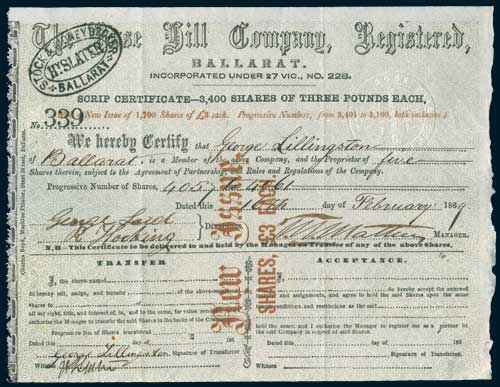 STOCK & MONEY BROKER
Hy. SLATER
BALLARAT
Hill Company, Registered,
BALLARAT.
INCORPORATED UNDER 27 VIC., NO. 228.
SCRIP CERTIFICATE—3,400 SHARES OF THREE POUNDS EACH,
(New Issue of 1,700 Shares of £3 each. Progressive Number, from 3,401 to 5,100, both inclusive.)
No. 339
We hereby Certify that George Lillingston
of Ballarat is a Member of the above Company, and the Proprietor of five
Shares therein, subject to the Agreement of Partnership Rules and Regulations of the Company.
Progressive Number of Shares, to
Dated this day of February 1869
MANAGER.
N.B—This Certificate to be delivered to and held by the Manager on Transfer of any of the above Shares.
New Issue
SHARES, £3 EACH
TRANSFER
I, the above-named
do hereby sell, assign, and transfer
all my right, title, and interest of, in, and to the same, for value received
authorise the Manager to transfer the said Shares in the books of the Company.
Progressive No. of Shares transferred
Dated this day of 186
George Lillingston Signature of Transferror
Witness
ACCEPTANCE.
I,
do hereby accept the annexed
and assignments, and agree to hold the said Shares upon the same
conditions and restrictions as the said
held the same, and I authorise the Manager to register me as a partner in
the said Company in respect of said Shares.
Dated this day of 186
Signature of Transferree.
Witness